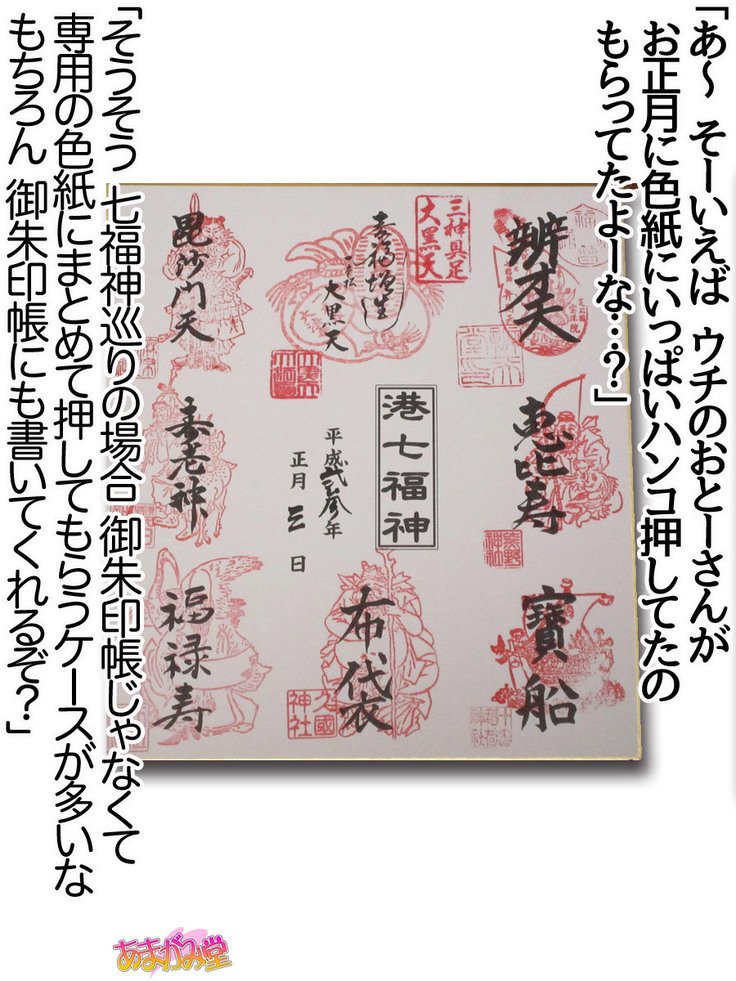 「あ～ そーいえば ウチのおとーさんが
お正月に色紙にいっぱいハンコ押してたの
もらってたよーな…？」
辨才天
三神具足
大黒天
幸福増生
大黒天
毘沙門天
恵比寿
熊野
神社
港七福神
平成弐拾参年
正月 三 日
寿老神
寶船
布袋
久國
神社
福禄寿
「そうそう 七福神巡りの場合 御朱印帳じゃなくて
専用の色紙にまとめて押してもらうケースが多いな
もちろん 御朱印帳にも書いてくれるぞ？」
あまがみ堂